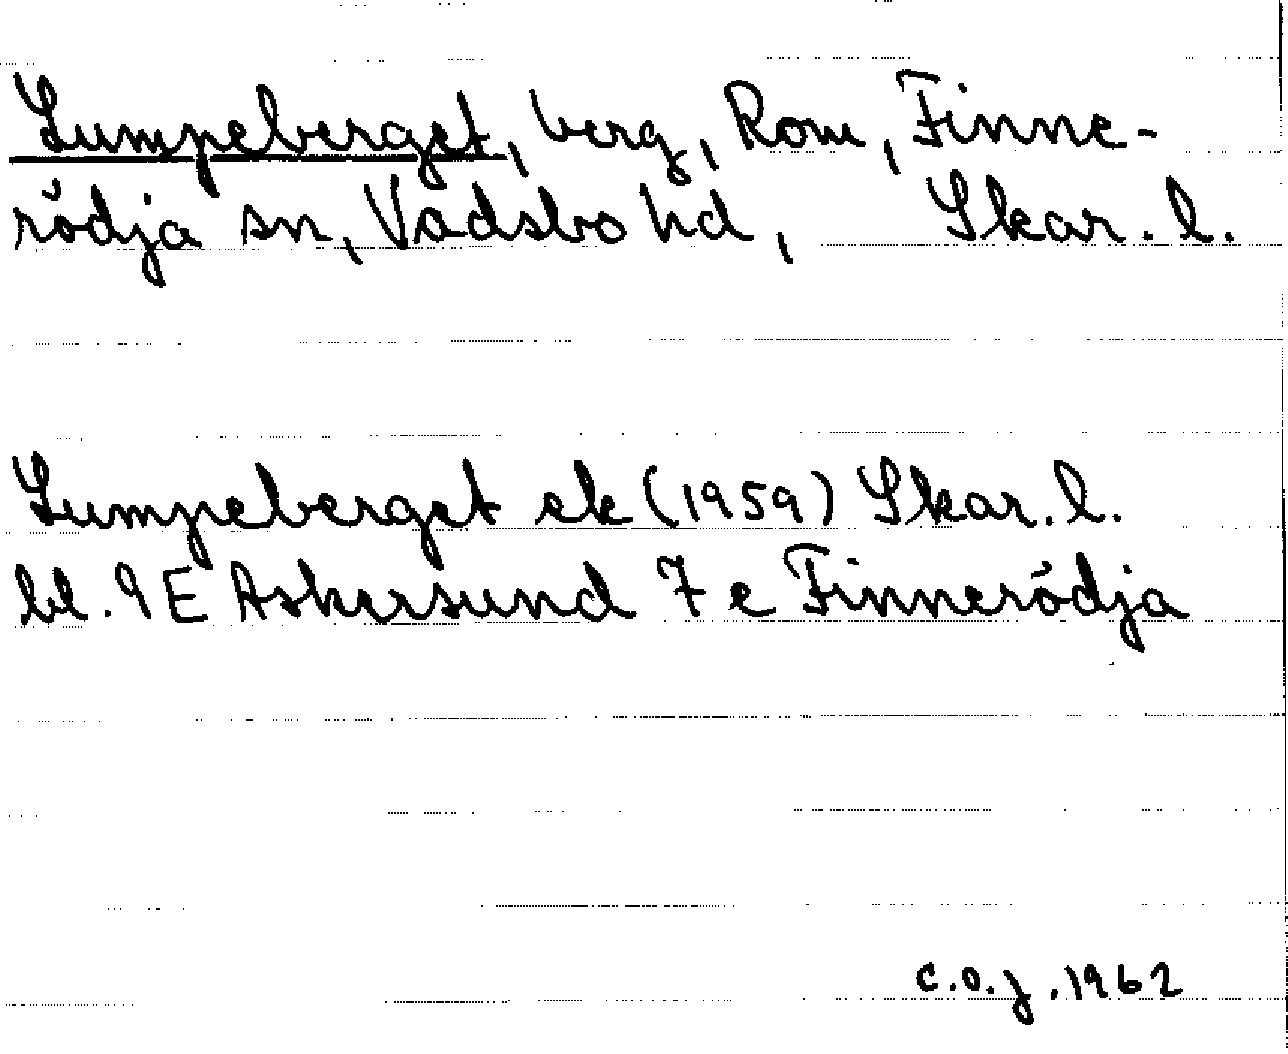 Lumpeberget, berg, Rom, Finne-
rödja sn, Vadsbo hd, Skar. l.
Lumpeberget ek (1959) Skar. l.
bl. 9E Askersund 7 e Finnerödja
C.O.J. 1962